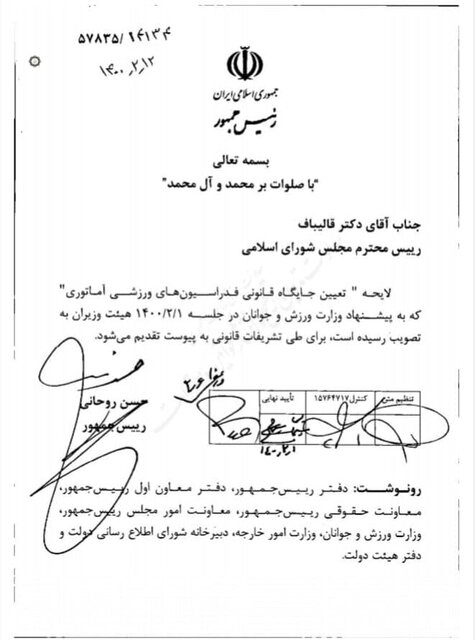 ۵۷۸۳۵/۹۴۱۳۴
۱۴۰۰٫۲٫۱۲
جمهوری اسلامی ایران
رئیس جمهور
بسمه تعالی
"با صلوات بر محمد و آل محمد"
جناب آقای دکتر قالیباف
رییس محترم مجلس شورای اسلامی
لایحه " تعیین جایگاه قانونی فدراسیون‌های ورزشی آماتوری"
که به پیشنهاد وزارت ورزش و جوانان در جلسه ۱۴۰۰/۲/۱ هیئت وزیران به
تصویب رسیده است، برای طی تشریفات قانونی به پیوست تقدیم می‌شود.
حسن روحانی
رییس‌جمهور
تنظیم متن کنترل ۱۵۷۶۴۷۱۷ تأیید نهایی
رونوشت: دفتر رییس‌جمهور، دفتر معاون اول رییس‌جمهور،
معاونت حقوقی رییس‌جمهور، معاونت امور مجلس رییس‌جمهور،
وزارت ورزش و جوانان، وزارت امور خارجه، دبیرخانه شورای اطلاع رسانی دولت و
دفتر هیئت دولت.